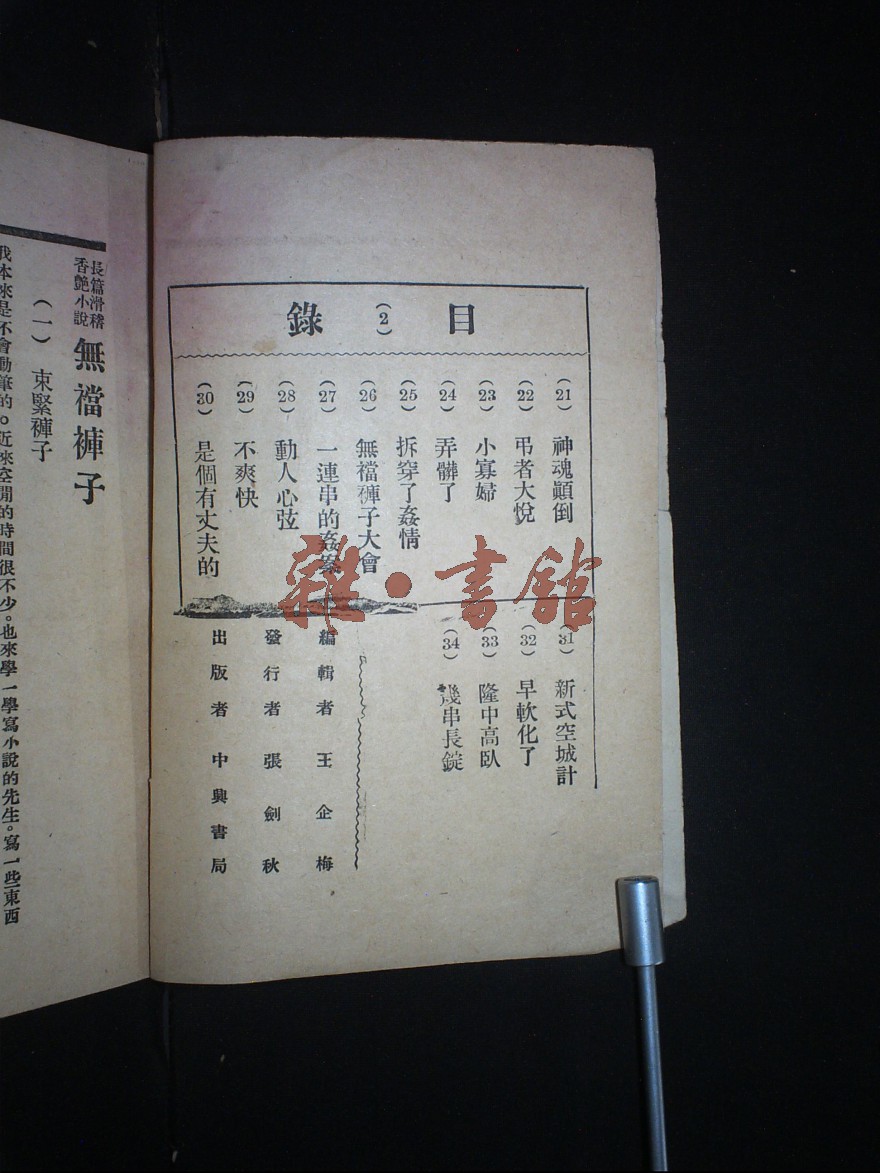 目 (2) 錄
(21) 神魂顚倒
(22) 弔者大悅
(23) 小寡婦
(24) 弄髒了
(25) 拆穿了姦情
(26) 無襠褲子大會
(27) 一連串的姦案
(28) 動人心弦
(29) 不爽快
(30) 是個有丈夫的
(31) 新式空城計
(32) 早軟化了
(33) 隆中高臥
(34) 幾串長錠
編輯者 王企梅
發行者 張劍秋
出版者 中興書局
長篇滑稽
香艷小說
無襠褲子
(一) 束緊褲子
我本來是不會動筆的。近來空閒的時間很不少。也來學一學寫小說的先生。寫一些東西
雜·書館